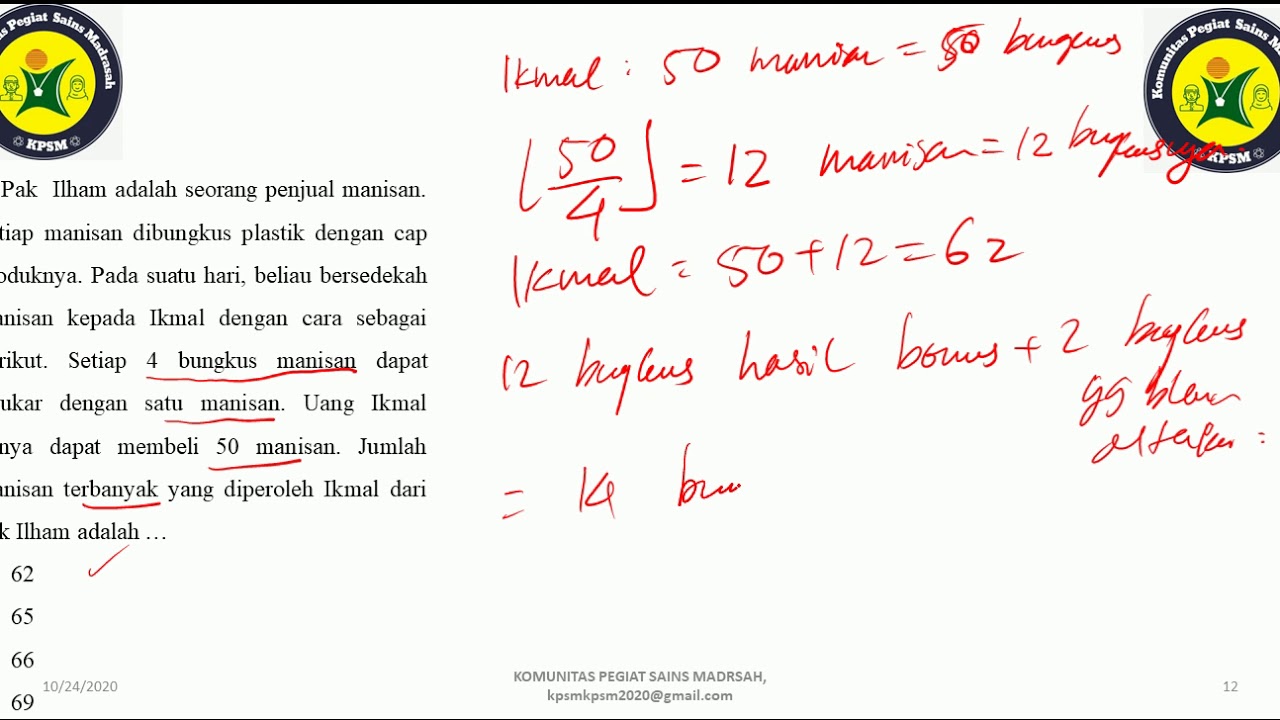 Komunitas Pegiat Sains Madrasah
KPSM
Pak Ilham adalah seorang penjual manisan.
tiap manisan dibungkus plastik dengan cap
oduknya. Pada suatu hari, beliau bersedekah
anisan kepada Ikmal dengan cara sebagai
rikut. Setiap 4 bungkus manisan dapat
ukar dengan satu manisan. Uang Ikmal
nya dapat membeli 50 manisan. Jumlah
anisan terbanyak yang diperoleh Ikmal dari
k Ilham adalah …
62
65
66
69
Ikmal : 50 manisan = 50 bungkus
⌊50/4⌋ = 12 manisan = 12
Ikmal = 50 + 12 = 62
12 bungkus hasil bonus + 2 bungkus
yg
= 14
Komunitas Pegiat Sains Ma
KPSM
10/24/2020
KOMUNITAS PEGIAT SAINS MADRSAH,
kpsmkpsm2020@gmail.com
12